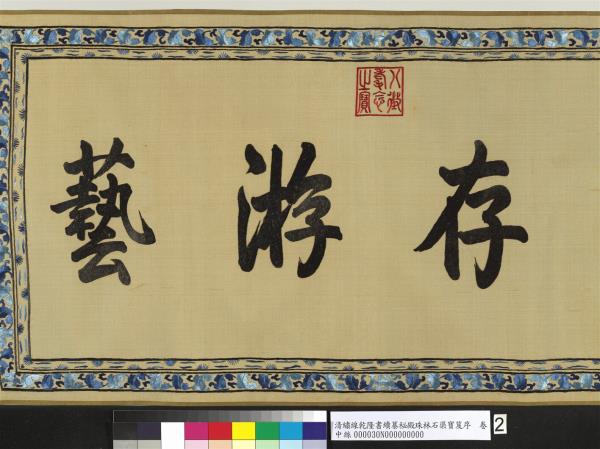 存游藝
八徵耄念之寶
清繡線乾隆書續纂秘殿珠林石渠寶笈序 卷
中絲 000030N000000000
2